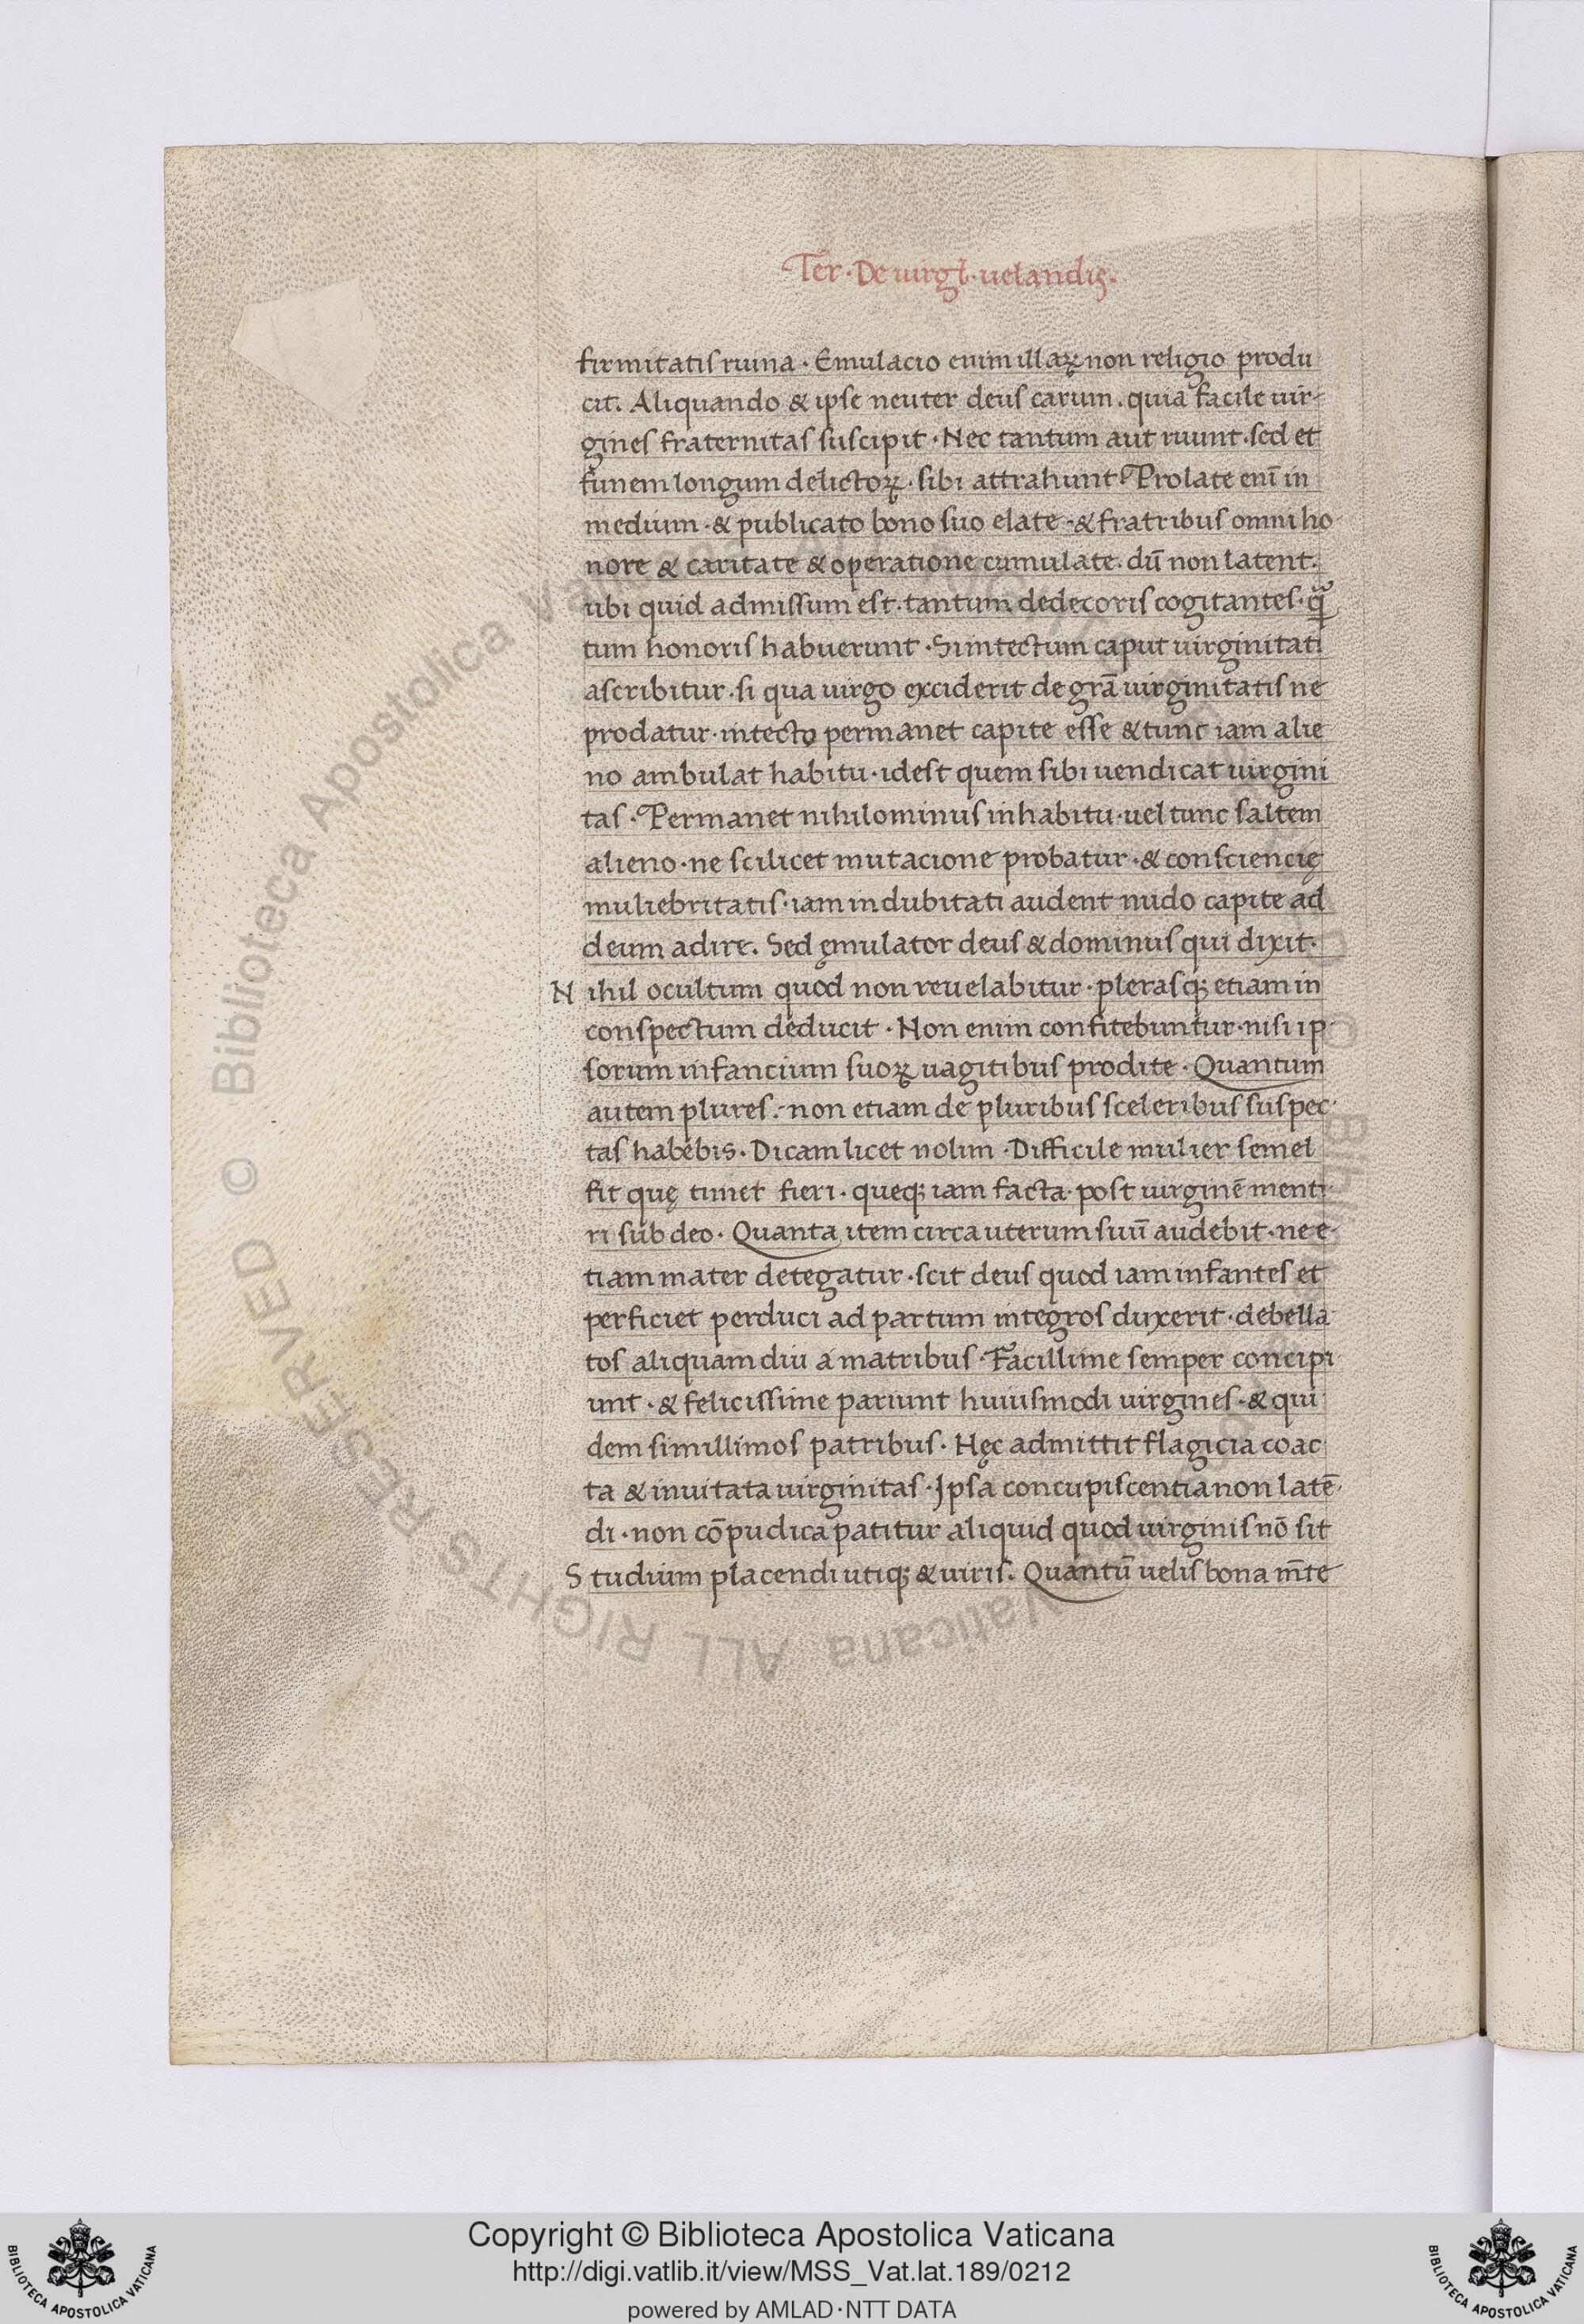 Ter̄ · De uirgl̄ · uelandis.
firmitatis ruina · Emulacio enim illaꝝ non religio produ
cit. Aliquando & ipse neuter deus earum . quia facile uir-
gines fraternitas suscipit · Nec tantum aut ruunt · sed et
funem longum delictoꝝ · sibi attrahunt · Prolate eni̅ in
medium · & publicato bono suo elate · & fratribus omni ho
nore & caritate & operatione cumulate . du̅ non latent.
ubi quid admissum est . tantum dedecoris cogitantes · qua̅
tum honoris habuerunt · Si intectum caput uirginitati
ascribitur . si qua uirgo exciderit de gr̅a uirginitatis ne
prodatur · intecto permanet capite esse & tunc iam alie
no ambulat habitu · idest quem sibi uendicat uirgini
tas · Permanet nihilominus in habitu · uel tunc saltem
alieno · ne scilicet mutacione probatur · & consciencię
muliebritatis · iam indubitati audent nudo capite ad
deum adire . Sed ęmulator deus & dominus qui dixit ·
Nihil ocultum quod non reuelabitur · plerasqꝫ etiam in
conspectum deducit · Non enim confitebuntur · nisi ip
sorum infancium suoꝝ uagitibus prodite · Quantum
autem plures . non etiam de pluribus sceleribus suspec
tas habebis · Dicam licet nolim · Difficile mulier semel
fit quę timet fieri . queqꝫ iam facta · post uirgine̅ menti
ri sub deo · Quanta item circa uterum suu̅ audebit · ne e
tiam mater detegatur · scit deus quod iam infantes et
perficiet perduci ad partum integros duxerit · debella
tos aliquamdiu a matribus · Facillime semper concipi
unt · & felicissime pariunt huiusmodi uirgines · & qui
dem simillimos patribus · Hęc admittit flagicia coac
ta & inuitata uirginitas · Ipsa concupiscentia non late̅
di · non co̅ pudica patitur aliquid quod uirginis no̅ sit
Studium placendi utiqꝫ & uiris . Quantu̅ uelis bona m̅te
Copyright © Biblioteca Apostolica Vaticana
http://digi.vatlib.it/view/MSS_Vat.lat.189/0212
powered by AMLAD·NTT DATA
BIBLIOTECA APOSTOLICA VATICANA
BIBLIOTECA APOSTOLICA VATICANA
© Biblioteca Apostolica Vaticana ALL RIGHTS RESERVED